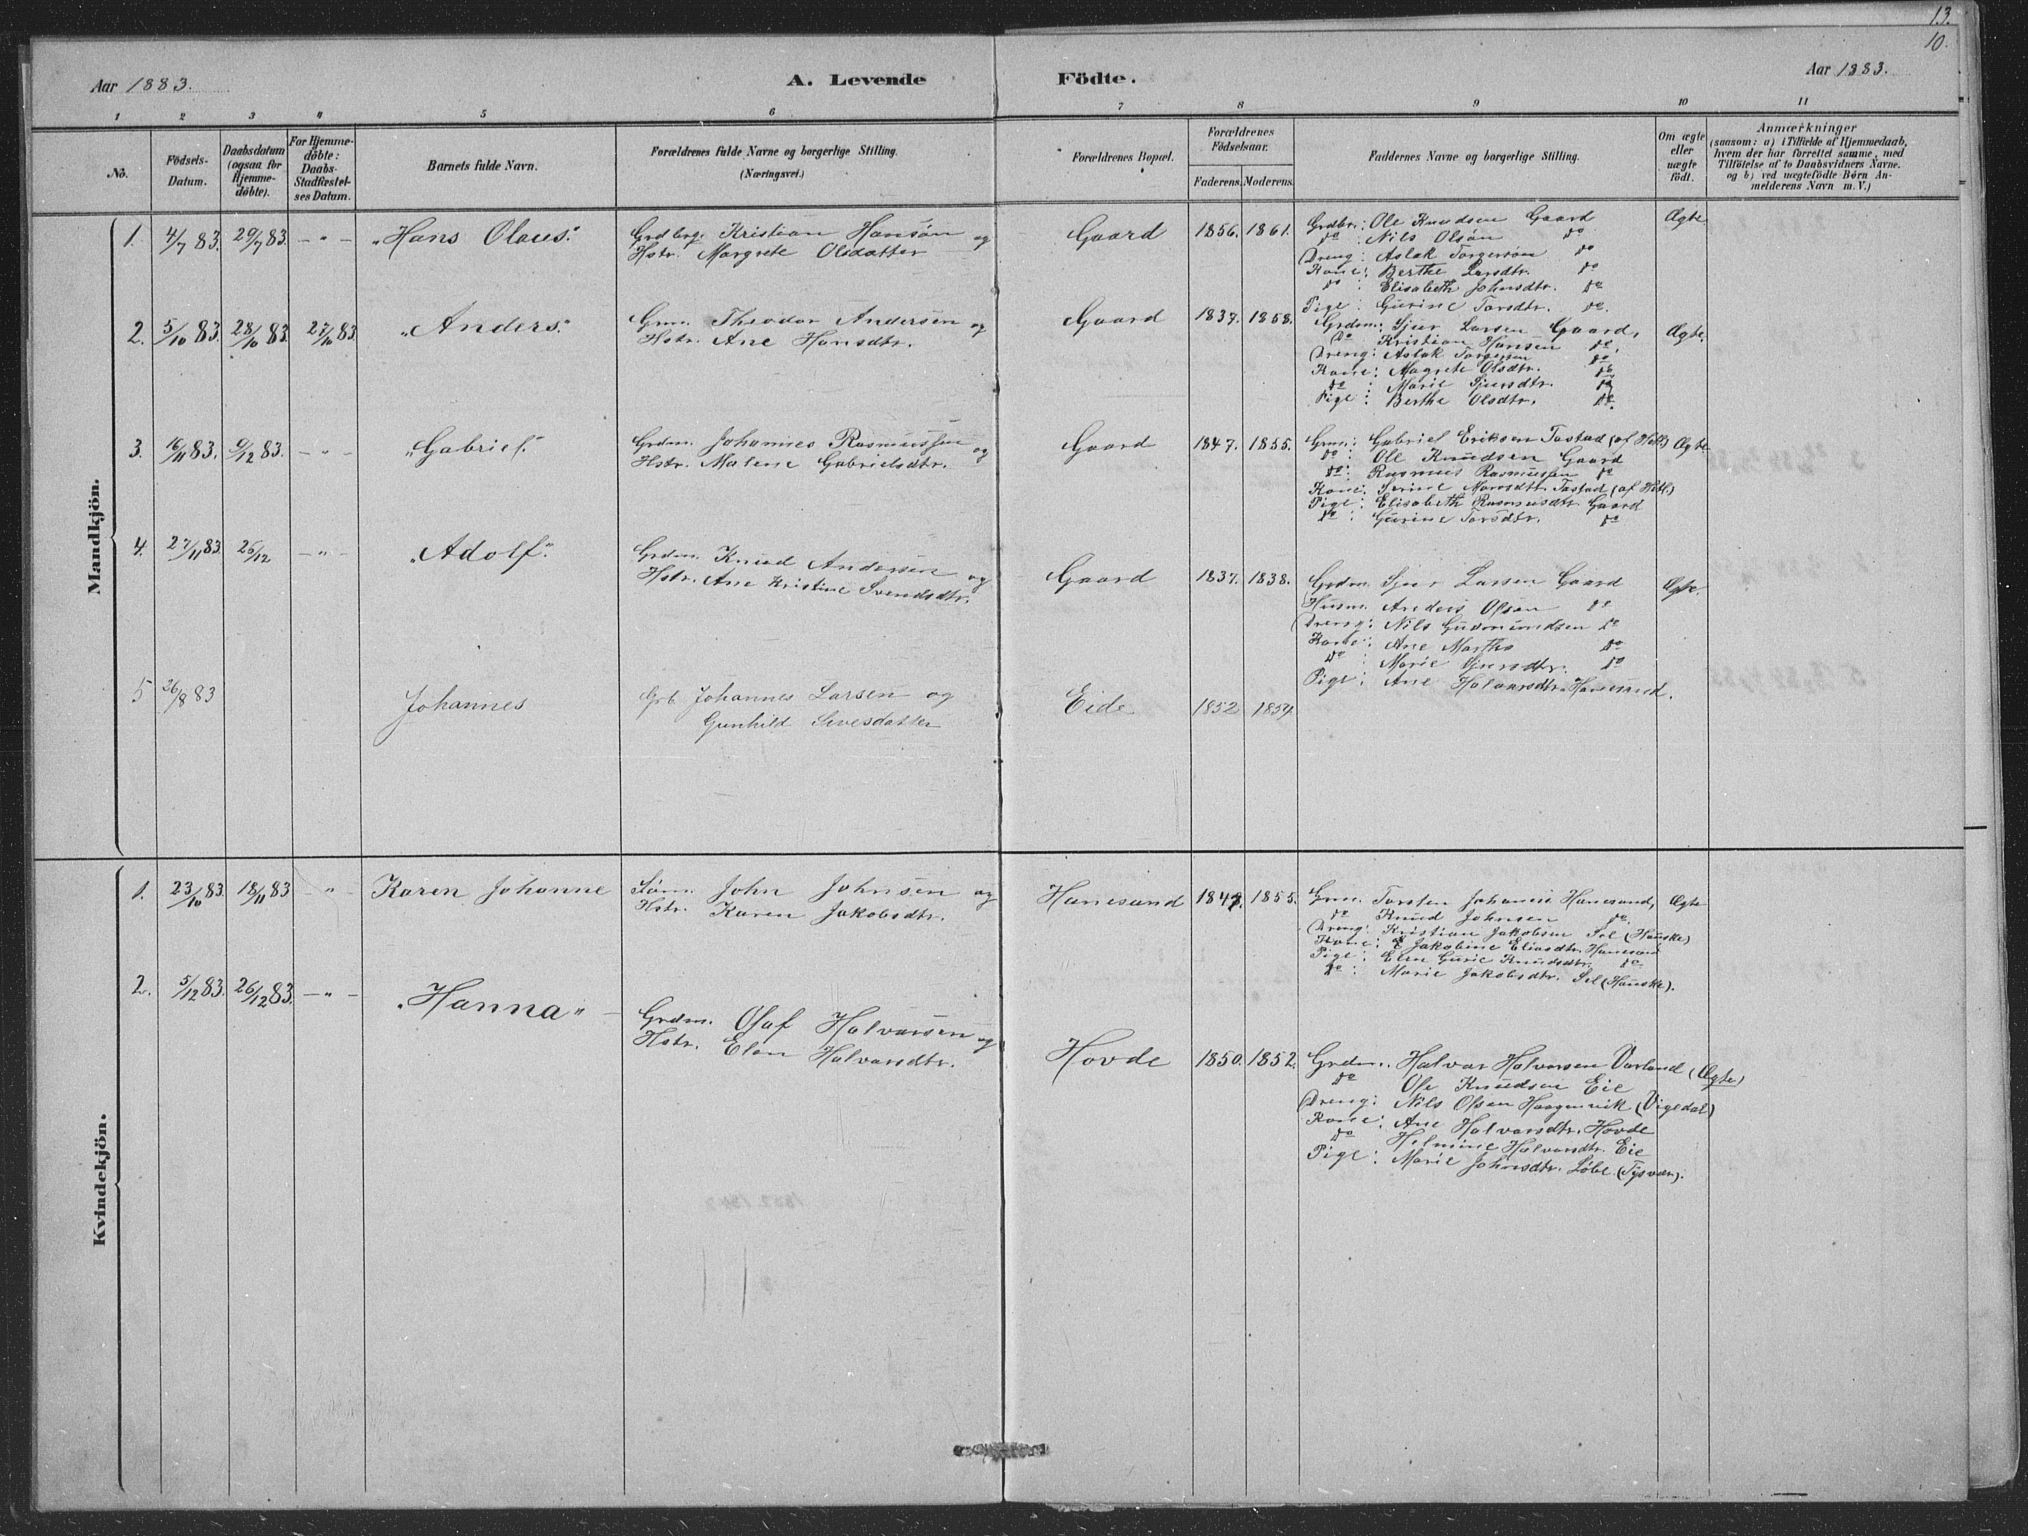 13.
10.
Aar 1883.
A. Levende Födte.
Aar 1883.
1 2 3 4 5 6 7 8 9 10 11
No.
Födsels-Datum.
Daabsdatum (ogsaa for Hjemme-döbte).
For Hjemme-döbte: Daabs-Stadfæstel-ses Datum.
Barnets fulde Navn.
Forældrenes fulde Navne og borgerlige Stilling.
(Næringsvei.)
Forældrenes Bopæl.
Forældrenes Födselsaar.
Faderens. Moderens.
Faddernes Navne og borgerlige Stilling.
Om ægte eller uægte födt.
Anmærkninger
(saasom: a) i Tilfælde af Hjemmedaab,
hvem der har forrettet samme, med
Tilföielse af to Daabsvidners Navne.
og b) ved uægtefödte Börn An-
melderens Navn m. V.)
Mandkjön.
1. 4/7 83. 29/7 83. -"- "Hans Olaus."
Grdbrg. Kristian Hansøn og
Hstr. Margrete Olsdatter
Gaard 1856. 1861.
Grdbr.: Ole Knudsen Gaard
do Nils Olsøn do
Dreng: Aslak Torgersøn do
Kone: Berthe Larsdtr. do
do : Elisabeth Johnsdtr. do
Pige : Gurine Torsdtr. do
Ægte
2. 5/10 83. 28/10 83. 27/10 83. "Anders."
Grm. Theodor Andersen og
Hstr. Ane Hansdtr.
Gaard 1837. 1858.
Grdm.: Sjur Larsen Gaard,
Do Kristian Hansen do,
Dreng: Aslak Torgersen do
Kone: Magrete Olsdtr. do
do : Marie Sjursdtr. do
Pige : Berthe Olsdtr. do
Ægte.
3. 16/11 83. 9/12 83. -"- "Gabriel."
Grdm. Johannes Rasmussen og
Hstr. Malene Gabrielsdtr.
Gaard 1847. 1855.
Grm.: Gabriel Eriksen Tastad (af Hetl)
do : Ole Knudsen Gaard
do: Rasmus Rasmussen do
Kone: Serine Tastad (af Hetl.)
Pige: Elisabeth Rasmusdtr. Gaard
do : Gurine Torsdtr. do
Ægte
4. 27/11 83. 26/12 -"- "Adolf."
Grdm. Knud Andersen og
Hstr. Ane Kristine Svendsdtr.
Gaard 1837. 1838.
Grdm. Sjur Larsen Gaard
Husm. Anders Olsen do
Dreng: Nils Gudmundsen do
Kone: Ane Martha do
do : Marie Sjursdtr. do
Pige: Ane Halvarsdtr. Hanesund.
Ægte.
5 26/8 83 Johannes
Grb Johannes Larsen og
Gunhild Sivesdatter
Eide 1852 1854.
Kvindekjön.
1. 23/10 83 18/11 83 -"- Karen Johanne
Søm. John Johnsen og
Hstr. Karen Jakobsdtr.
Hanesund 1855.
Grm. Torsten Johannes Hanesund,
do Knud Johnsen do.
Dreng: Kristian Jakobsen Sel (Hauske)
Kone: Jakobine Eliasdtr. Hanesund
Pige : Elen Gurie Knudsdtr. do
do : Marie Jakobsdtr. Sel (Hauske).
Ægte
2. 5/12 83. 26/12 83. -"- "Hanna" -
Grdm. Olaf Halvarsen og
Hstr. Elen Halvarsdtr.
Hovde 1850. 1852.
Grdm. Halvar Halvarsen Varland (Ægte)
do Ole Knudsen Eie
Dreng: Nils Olsen Haagenvik (Vigedal)
Kone: Ane Halvarsdtr. Hovde
do Helmine Halvarsdtr. Eie
Pige : Marie Johnsdtr. Løbe (Tysvær).